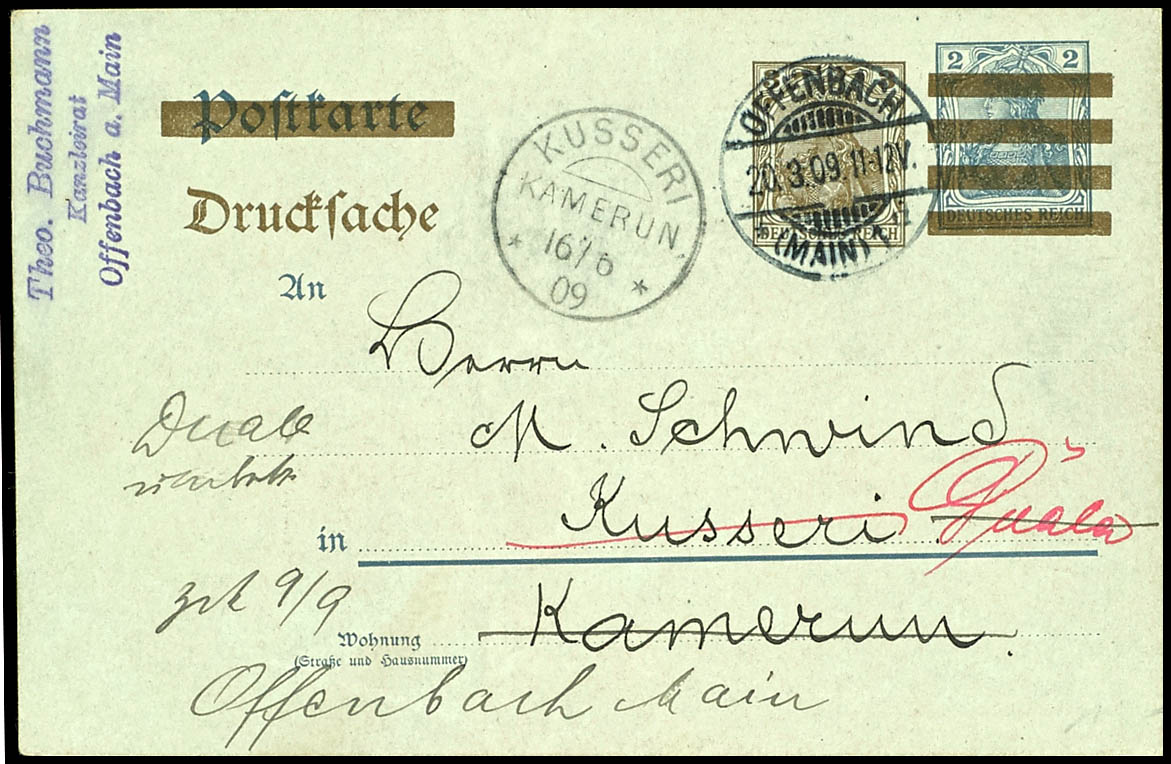 Theo. Buchmann
Kanzleirat
Offenbach a. Main
Postkarte
Drucksache
An
KUSSERI
KAMERUN.
16/6
09
OFFENBACH
20.3.09.11-12V.
(MAIN)
DEUTSCHES REICH
2
2
DEUTSCHES REICH
Herrn
M. Schwind
in Kusseri Duala
Kamerun.
Duala
Wohnung
(Straße und Hausnummer)
9/9
Offenbach Main